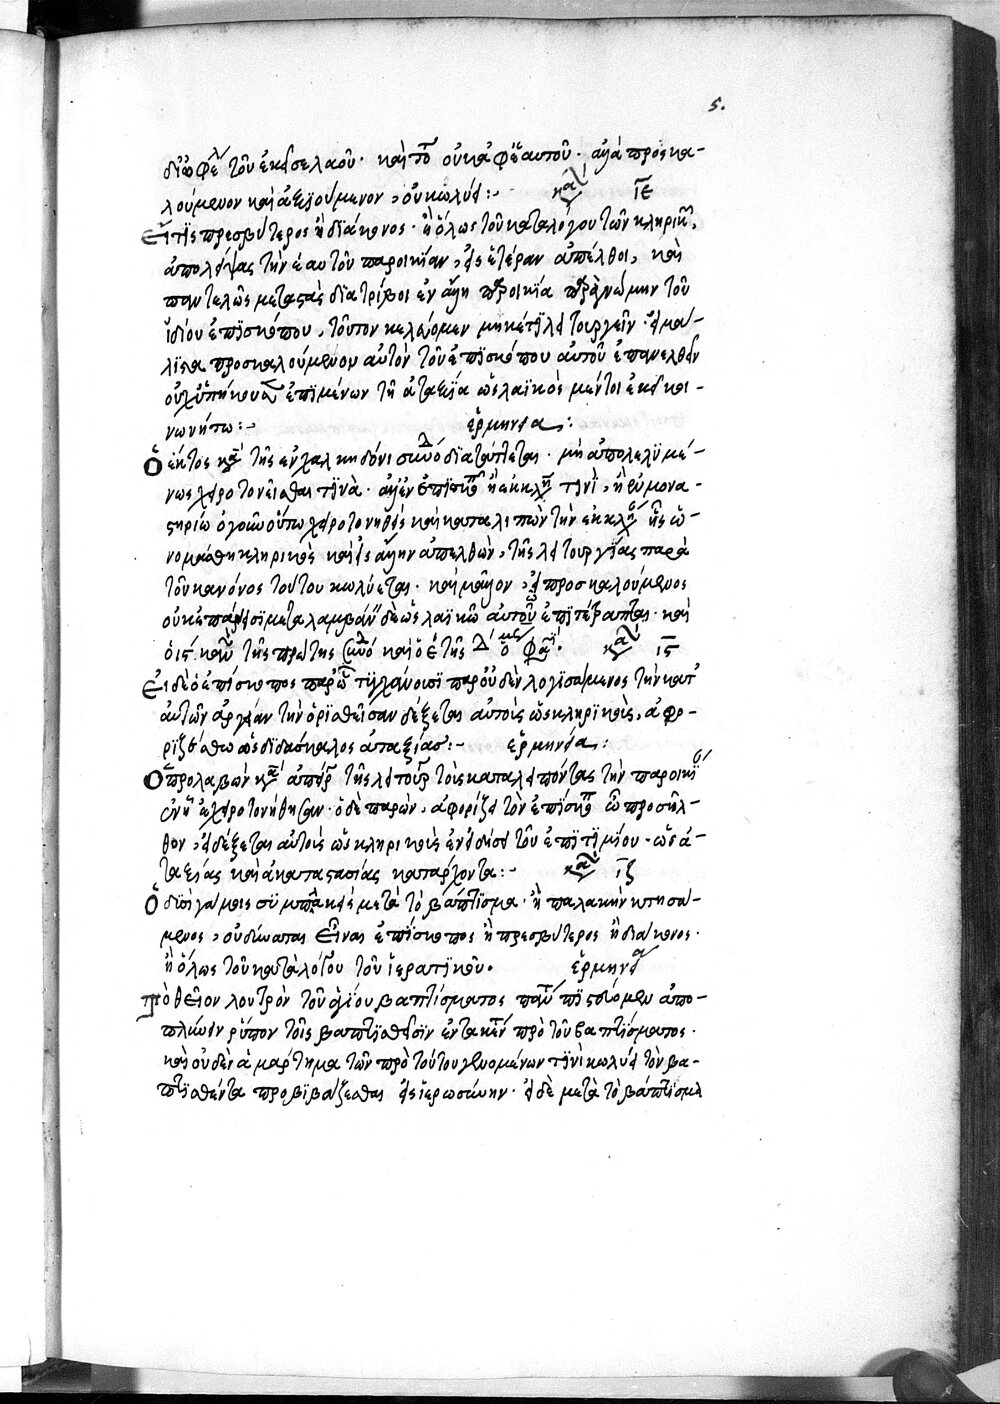 5.
τοῦ ἐκεῖσε λαοῦ· καὶ τὸ οὐκ ἀφ' ἑαυτοῦ· ἀλλὰ προσκα-
λούμενον καὶ ἀξιούμενον, οὐ κωλύει:- κα ιε
Εἴ τις πρεσβύτερος ἢ διάκονος· ἢ ὅλως τοῦ καταλόγου τῶν κληρικ
ἀπολείψας τὴν ἑαυτοῦ παροικίαν, εἰς ἑτέραν ἀπέλθοι, καὶ
παντελῶς μεταστὰς διατρίβοι ἐν ἄλλη παροικία παρὰ γνώμην τοῦ
ἰδίου ἐπισκόπου, τοῦτον κελεύομεν μηκέτι λειτουργεῖν· εἰ μά-
λιστα προσκαλούμενον αὐτὸν τοῦ ἐπισκόπου αὐτοῦ ἐπανελθεῖν
οὐχ ὑπήκουσεν ἐπιμένων τῆ ἀταξία ὡς λαϊκὸς μέντοι ἐκεῖ κοι-
νωνήτω:- ἑρμηνεία:
Ὁ ἕκτος κα τῆς ἐν χαλκηδόνι συνόδου διατάττεται· μὴ ἀπολελυμέ-
νως χειροτονεῖσθαι τινὰ· ἀλλ' ἐν ἐπισκο ἢ ἐκκλη τινὶ, ἢ ἐν μονα-
στηρίω ὁ γοῦν οὕτω χειροτονηθεὶς καὶ καταλιπὼν τὴν ἐκκλη ἧς ὠ-
νομάσθη κληρικὸς καὶ εἰς ἄλλην ἀπελθὼν, τῆς λειτουργίας παρὰ
τοῦ κανόνος τούτου κωλύεται· καὶ μᾶλλον, εἰ προσκαλούμενος
οὐκ ἐπάνεισι μεταλαμβάνειν δὲ ὡς λαϊκῶ αὐτοῦ ἐπιτέτραπται· καὶ
ὁ ις κα τῆς πρώτης συνό καὶ ὁ ε τῆς κα ις
Εἰ δὲ ὁ ἐπίσκοπος παρ' ὧ τυγχάνοισι παρ' οὐδὲν λογισάμενος τὴν κατ
αὐτῶν ἀργείαν τὴν ὁρισθεῖσαν δέξεται αὐτοὺς ὡς κληρικοὺς, ἀφο-
ριζέσθω ὡς διδάσκαλος ἀταξίας:- ἑρμηνεία:
Ὁ προλαβὼν κα ἀπεῖρ τῆς λειτουρ τοὺς καταλειπόντας τὴν παροικί
ἐν ἧ ἐχειροτονήθησαν· ὁ δὲ παρὼν, ἀφορίζει τὸν ἐπίσκο ὧ προσῆλ-
θον, εἰ δέξεται αὐτοὺς ὡς κληρικοὺς ἐν εἰδήσει τοῦ ἐπιτιμίου· ὡς ἀ-
ταξίας καὶ ἀκαταστασίας κατάρχοντα:- κα ιζ
Ὁ δυσὶ γάμοις συμπλακεὶς μετὰ τὸ βάπτισμα· ἢ παλακὴν κτησά-
μενος, οὐ δύναται εἶναι ἐπίσκοπος ἢ πρεσβύτερος ἢ διάκονος·
ἢ ὅλως τοῦ καταλόγου τοῦ ἱερατικοῦ· ἑρμηνεία
Τὸ θεῖον λουτρὸν τοῦ ἁγίου βαπτίσματος παντ πιστεύομεν ἀπο-
πλύνειν ῥύπον τοῖς βαπτισθεῖσιν ἐντακέν πρὸ τοῦ βαπτίσματος·
καὶ οὐδὲν ἁμάρτημα τῶν πρὸ τούτου γενομένων τινὶ κωλύει τὸν βα-
πτισθέντα προβιβάζεσθαι εἰς ἱερωσύνην· εἰ δὲ μετὰ τὸ βάπτισμα